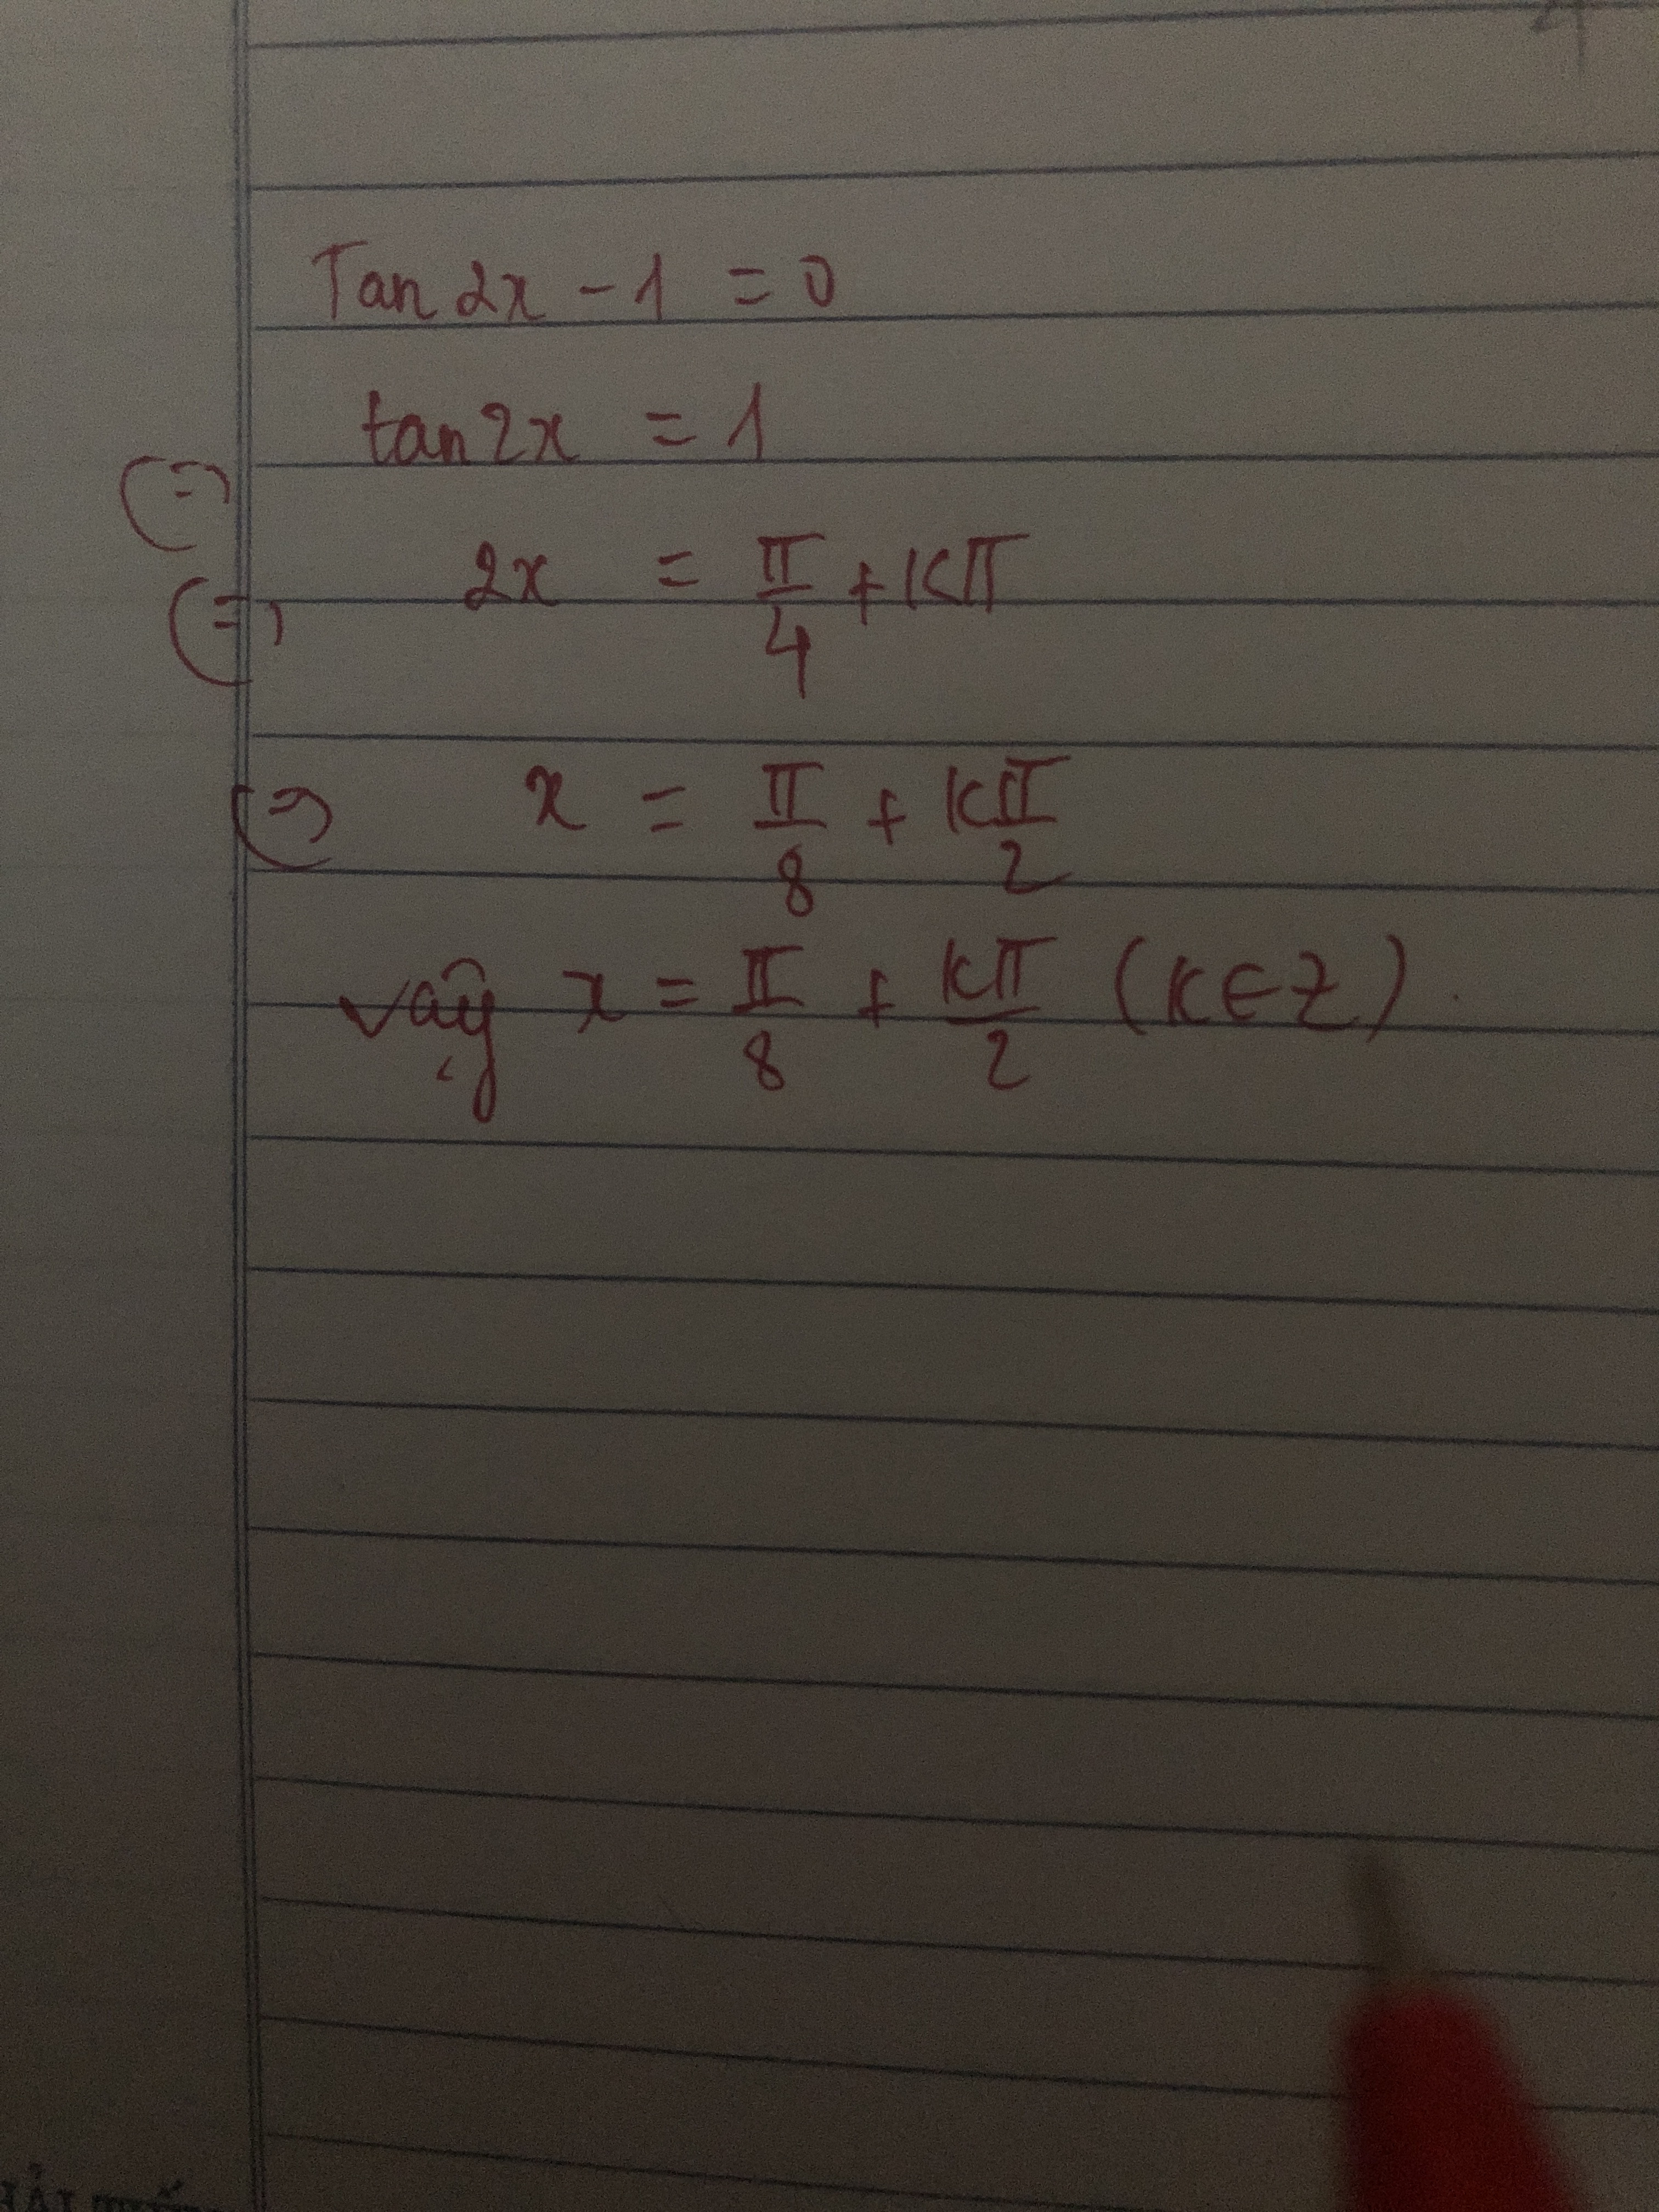 Tan 2x - 1 = 0
tan 2x = 1
⇔ 2x = π/4 + kπ
⇔ x = π/8 + kπ/2
Vậy x = π/8 + kπ/2 (k ∈ Z).